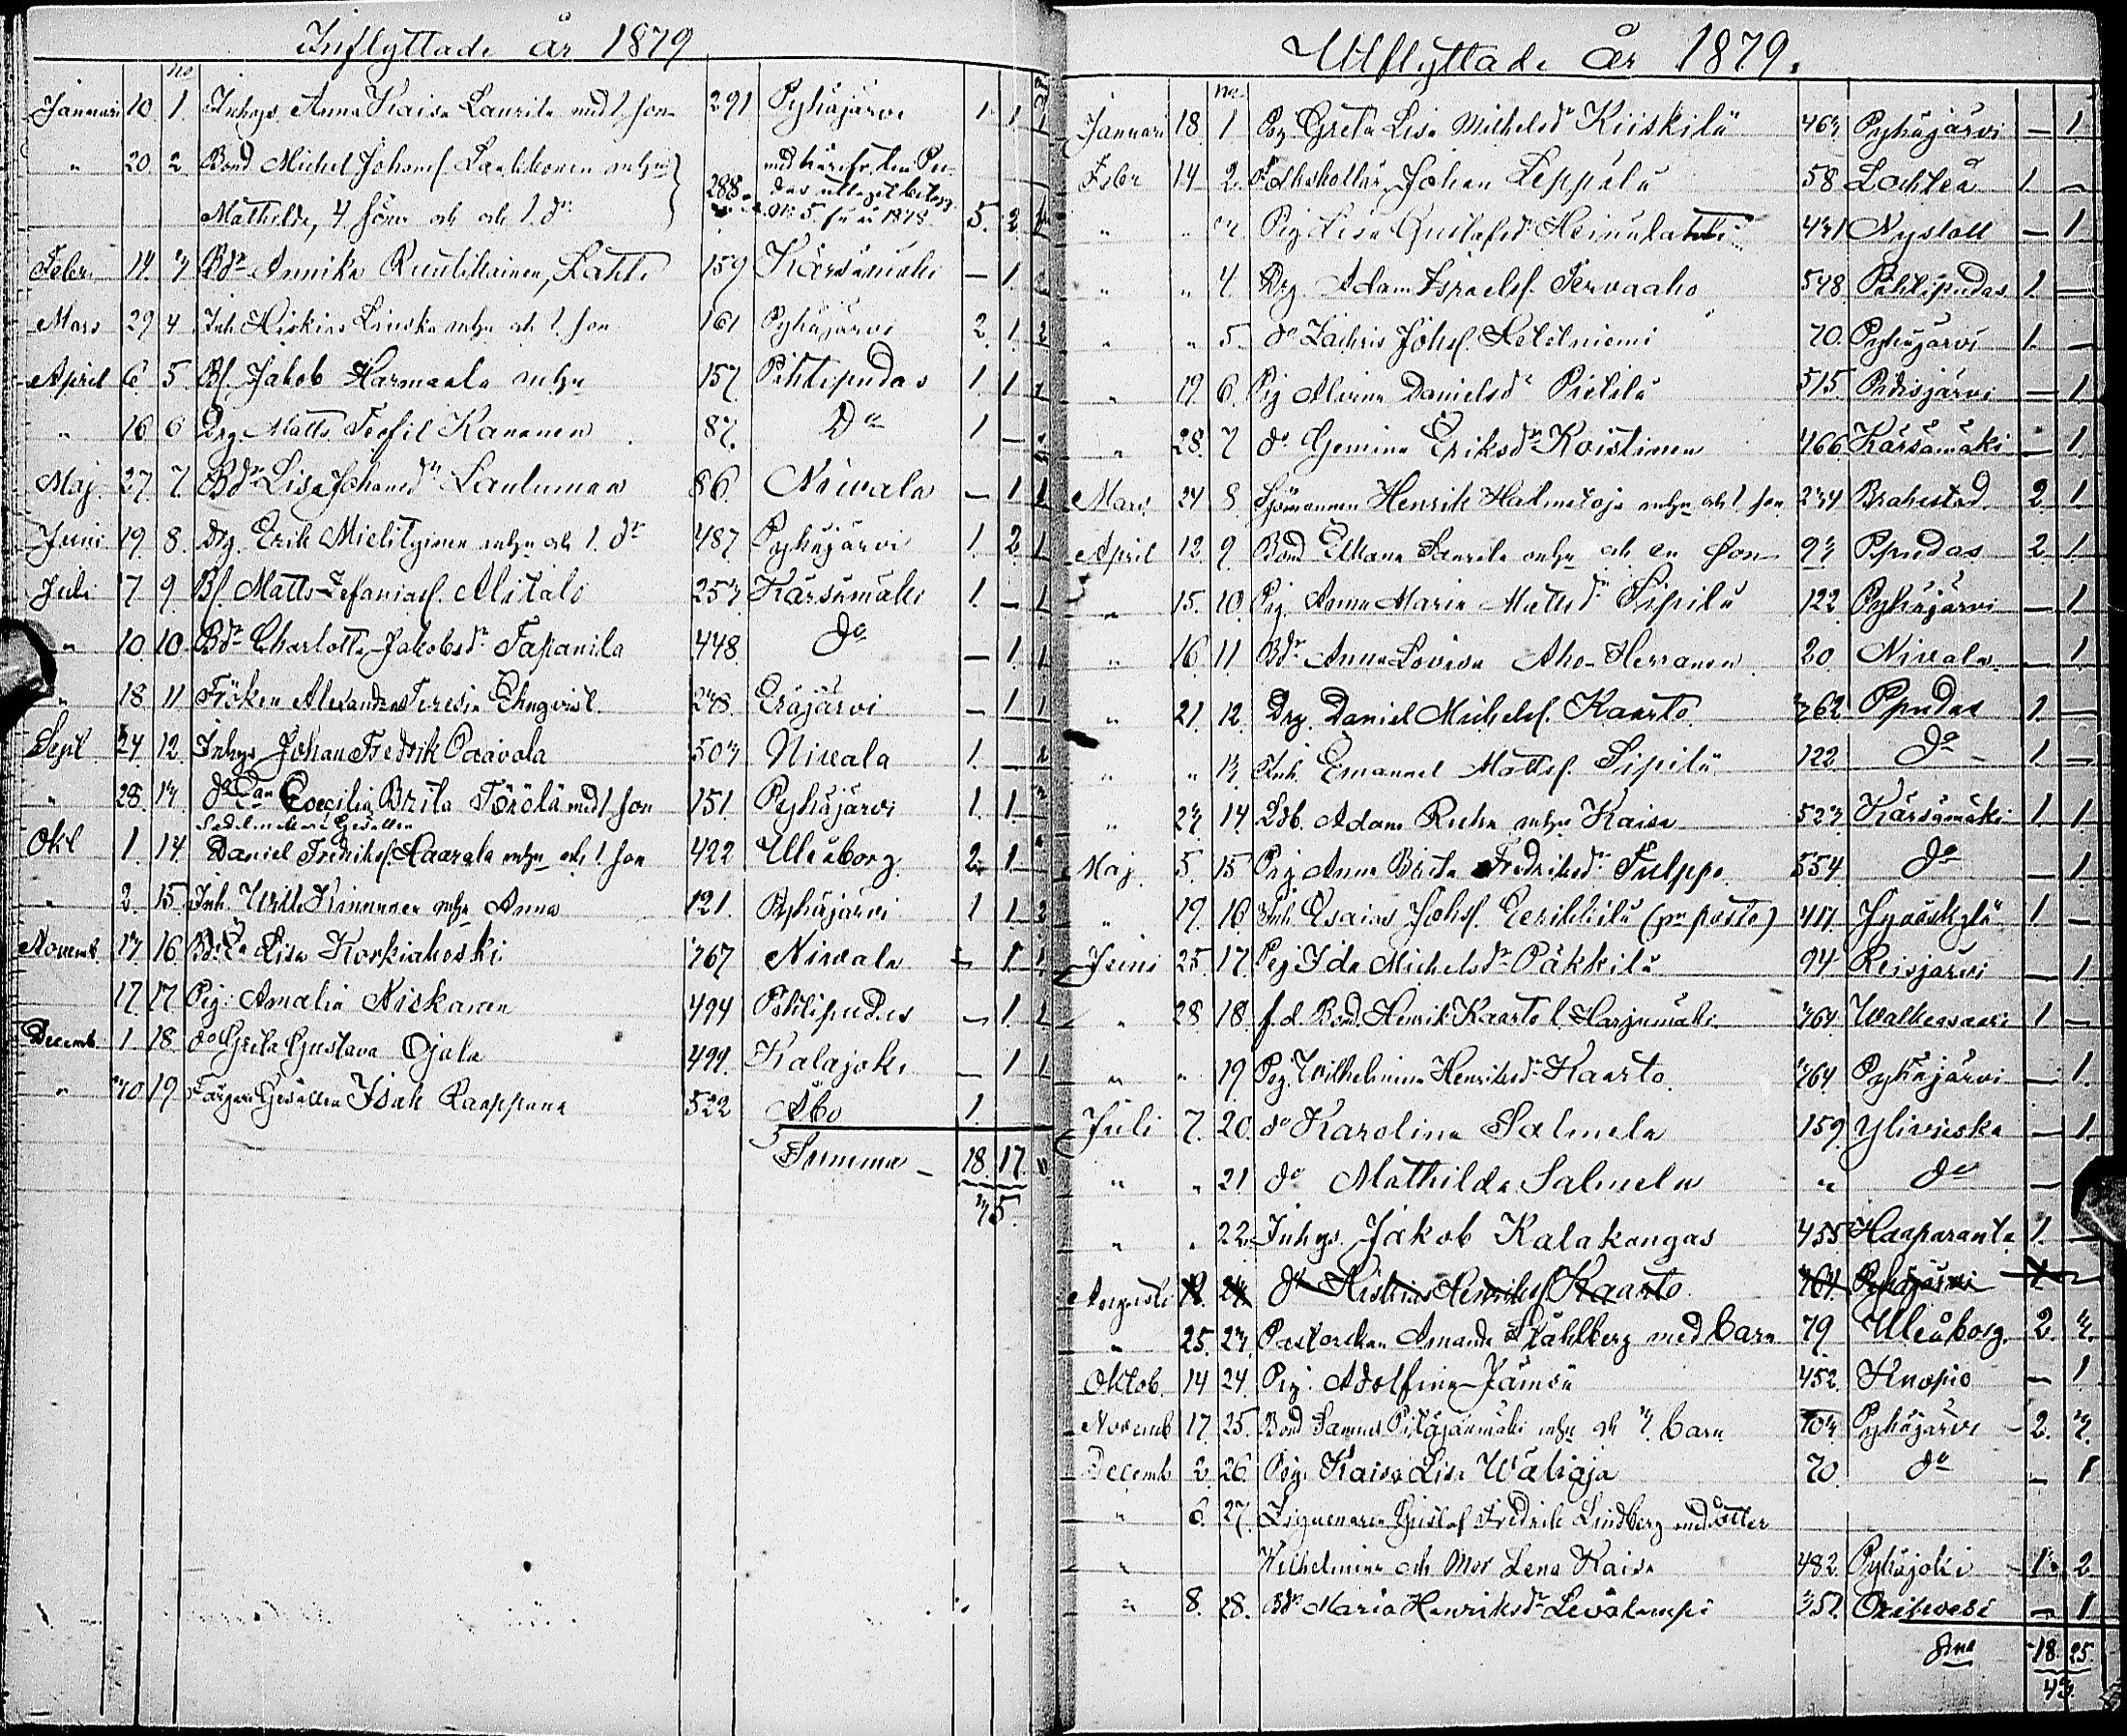 Inflyttade år 1879
no
Januari 10. 1. Inhys. Anna Kaisa Laurila med 1. son 291 Pyhäjärvi 1. 1
" 20. 2 Bond Michel Johansf. Laukkonen
Mathilda, 4 söner och 1. dr 288 No 5. för år 1878 5. 2
Febr. 14. 3 Bdr Annika Ruutikainen, Lahti 159 Kärsämäki — 1.
Mars 29 4 Inh. Hiskias Linska och 1. son 161 Pyhäjärvi 2. 1. 2
April 6 5. Bf. Jakob Harmaala 157. Pihtipudas 1. 1
" 16 6 Drg. Matts Teofil Kananen 87. Do 1 —
Maj. 27. 7. Bdr Lisa Johansdr Laulumaa 86. Nivala — 1 1
Juni 19 8. Drg. Erik Mielityinen och 1. dr 487 Pyhäjärvi 1. 2
Juli 7 9. Bf. Matts Zefaniasf. Alitalo 253 Kärsämäki 1. — 1
" 10. 10. Bdr Charlotta Jakobsdr Tapanila 448. do — 1. 1
" 18 11 Fröken Alexandra Teresia Ehnqvist. 278. Eräjärvi — 1 1
Sept. 24 12. Inhys Johan Fredrik Paavola 503 Nivala 1. —
" 28. 13. Coecilia Brita Törölä med 1 son 151. Pyhäjärvi 1. 1.
Sadelmakare Gesällen
Okt 1. 14 Daniel Fredriksf. Haarala och 1. son 422 Uleåborg 2. 1
" 2. 15. Inh. Wilh. Kinnunen Anna 121. Pyhäjärvi 1 1. 2
Novemb. 13. 16. Lisa Korkiakoski 367 Nivala — 1 1.
17. 17. Pig. Amalia Niskanen 494 Pihtipudas — 1.
Decemb. 1. 18. do Greta Gustava Ojala 499. Kalajoki — 1 1
" 30. 19 Färgare Gesällen Isak Raappana 522 Åbo 1.
Summa — 18. 17.
35.
Utflyttade år 1879.
no
Januari 18. 1 Pig Greta Lisa Michelsdr Kiiskilä 463 Pyhäjärvi — 1.
Febr 14 2. Folkskollär. Johan Leppälä 58 Lochteå 1. —
" " 3 Pig Lisa Gustafsdr 431 Nystott — 1
" " 4. Drg. Adam Israelsf. Tervaaho 548. Pihtipudas 1. —
" " 5. do Zachris Johsf. Hetelniemi 70. Pyhäjärvi 1. —
" 19. 6. Pig Alvina Danielsdr Pietilä 515. Pidisjärvi — 1.
" 28. 7 do Gemina Eriksdr Koistinen 466. Kärsämäki — 1.
Mars. 24 8. Sjömannen Henrik Halmetoja och 1. son 234 Brahestad. 2 1.
April 12. 9 Bond Elkana Laurila och en son 93 Ppudas 2. 1.
" 15. 10. Pig. Anna Maria Mattsdr Sipilä 122 Pyhäjärvi — 1.
" 16. 11 Bdr Anna Lovisa Aho-Herranen 20 Nivala. — 1.
" 21. 12. Drg. Daniel Michelsf. Kaarto. 362 Ppudas 1. —
" " 13. Inh. Emanuel Mattsf. Sipilä 122. Do — 1 —
" 23. 14 Ldb. Adam Ruha Kaisa 523. Kärsämäki 1. 1.
Maj. 5. 15 Pig Anna Brita Fredriksdr Tulppo. 554. do — 1.
" 19. 16. Inh Esaias Johsf. Eerikkilä 411. Jyväskylä 1. —
Juni 25. 17 Pig Ida Michelsdr Päkkilä 94 Reisjärvi — 1.
" 28 18. f.d. Bond. Henrik Kaarto l. Harjumäki 364. Walkeasaari 1 —
" " 19 Pig. Wilhelmina Henriksdr Kaarto. 364 Pyhäjärvi — 1.
Juli 7. 20. do Karolina Salmela 159 Ylivieska — 1.
" " 21 do Mathilda Salmela " do —
" " 22. Inhys. Jakob Kalakangas 455 Haaparanta 1. —
Augusti Hiskias Henriksf Kaarto 364. Pyhäjärvi 1 —
" 25. 23. Pastorskan Amanda Ståhlberg med barn 79 Uleåborg. 2. 3.
Oktob. 14 24. Pig. Adolfina Jämsä 452. Kuopio — 1.
Novemb 17. 25. Bond Samuel Pitäjänmäki och 3. barn 103 Pyhäjärvi — 2. 3.
Decemb 2. 26. Pig. Kaisa Lisa Wäliaja 70. do — 1
" 6. 27. Zigenaren Gustaf Fredrik Lindberg med dotter
" Wilhelmina och Mor Lena Kaisa 482. Pyhäjoki — 1. 2
" 8. 28. Bdr Maria Henriksdr Levälampi 351. Orihvesi — 1
Sma 18. 25.
43.